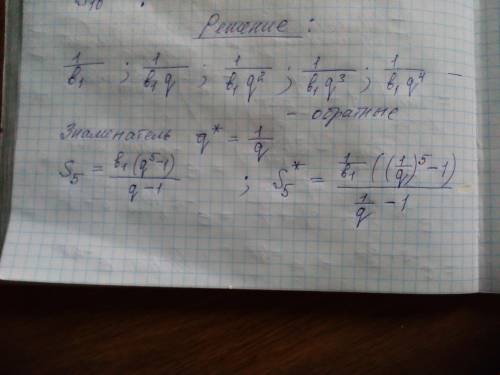 Решение :
1/в₁ ; 1/(в₁q) ; 1/(в₁q²) ; 1/(в₁q³) ; 1/(в₁q⁴) –
– обратные
Знаменатель q* = 1/q
S₅ = в₁(q⁵-1)/(q-1) ; S₅* = (1/в₁ ((1/q)⁵-1))/(1/q - 1)